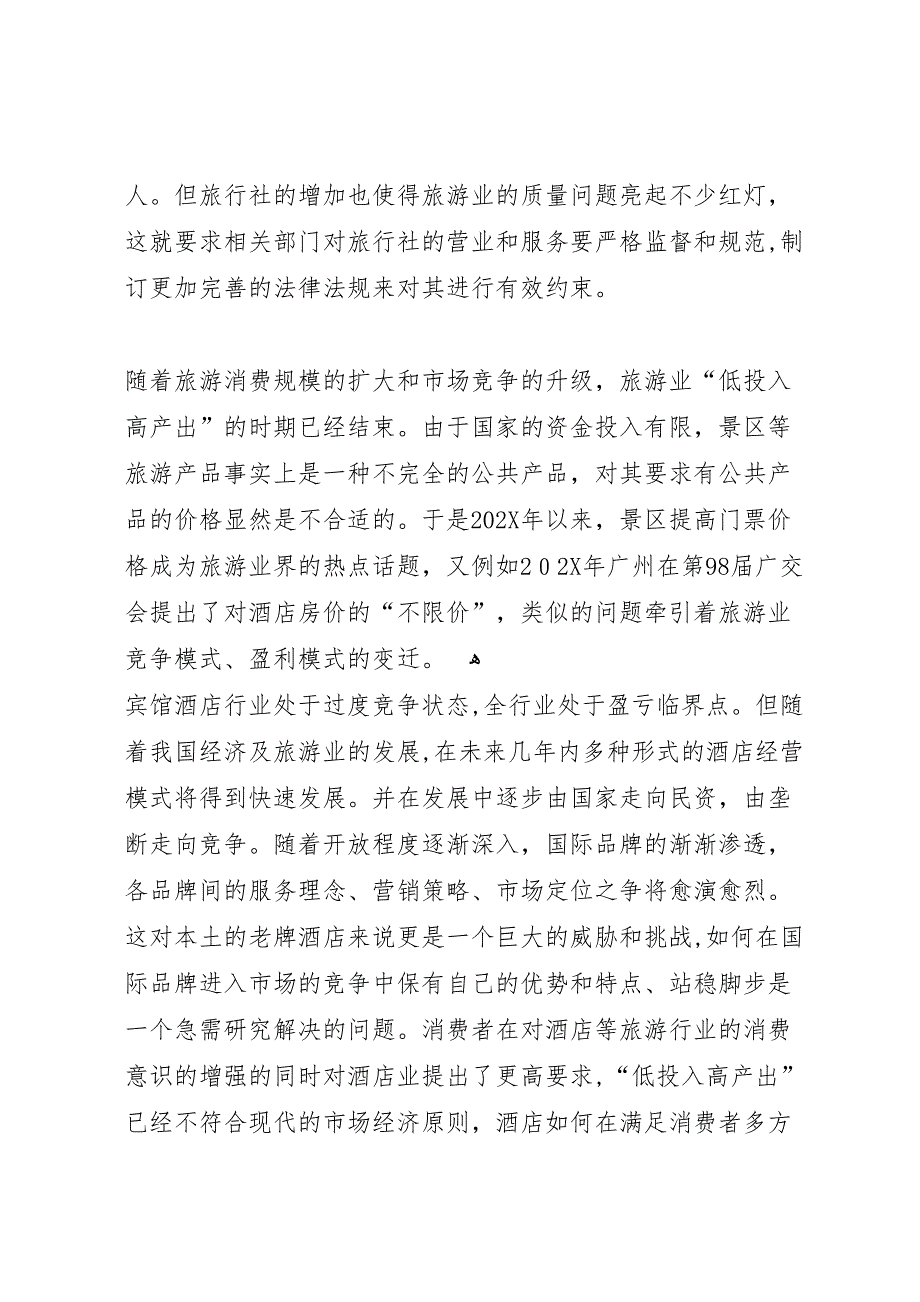 人。但旅行社的增加也使得旅游业的质量问题亮起不少红灯，
这就要求相关部门对旅行社的营业和服务要严格监督和规范,制
订更加完善的法律法规来对其进行有效约束。
随着旅游消费规模的扩大和市场竞争的升级，旅游业“低投入
高产出”的时期已经结束。由于国家的资金投入有限，景区等
旅游产品事实上是一种不完全的公共产品，对其要求有公共产
品的价格显然是不合适的。于是202X年以来，景区提高门票价
格成为旅游业界的热点话题，又例如2 0 2X年广州在第98届广交
会提出了对酒店房价的“不限价”，类似的问题牵引着旅游业
竞争模式、盈利模式的变迁。 ﻫ
宾馆酒店行业处于过度竞争状态,全行业处于盈亏临界点。但随
着我国经济及旅游业的发展,在未来几年内多种形式的酒店经营
模式将得到快速发展。并在发展中逐步由国家走向民资，由垄
断走向竞争。随着开放程度逐渐深入，国际品牌的渐渐渗透，
各品牌间的服务理念、营销策略、市场定位之争将愈演愈烈。
这对本土的老牌酒店来说更是一个巨大的威胁和挑战,如何在国
际品牌进入市场的竞争中保有自己的优势和特点、站稳脚步是
一个急需研究解决的问题。消费者在对酒店等旅游行业的消费
意识的增强的同时对酒店业提出了更高要求,“低投入高产出”
已经不符合现代的市场经济原则，酒店如何在满足消费者多方